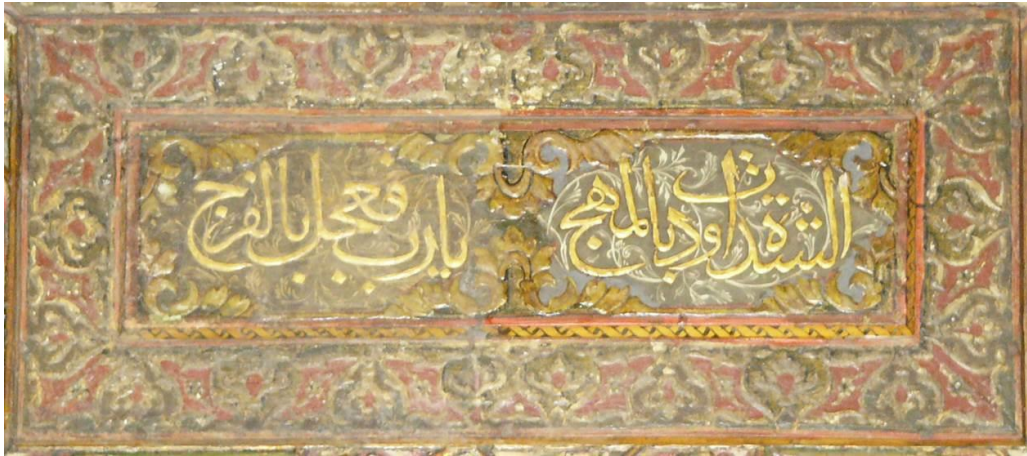 الشدة اودت بالمهج يا رب فعجل بالفرج